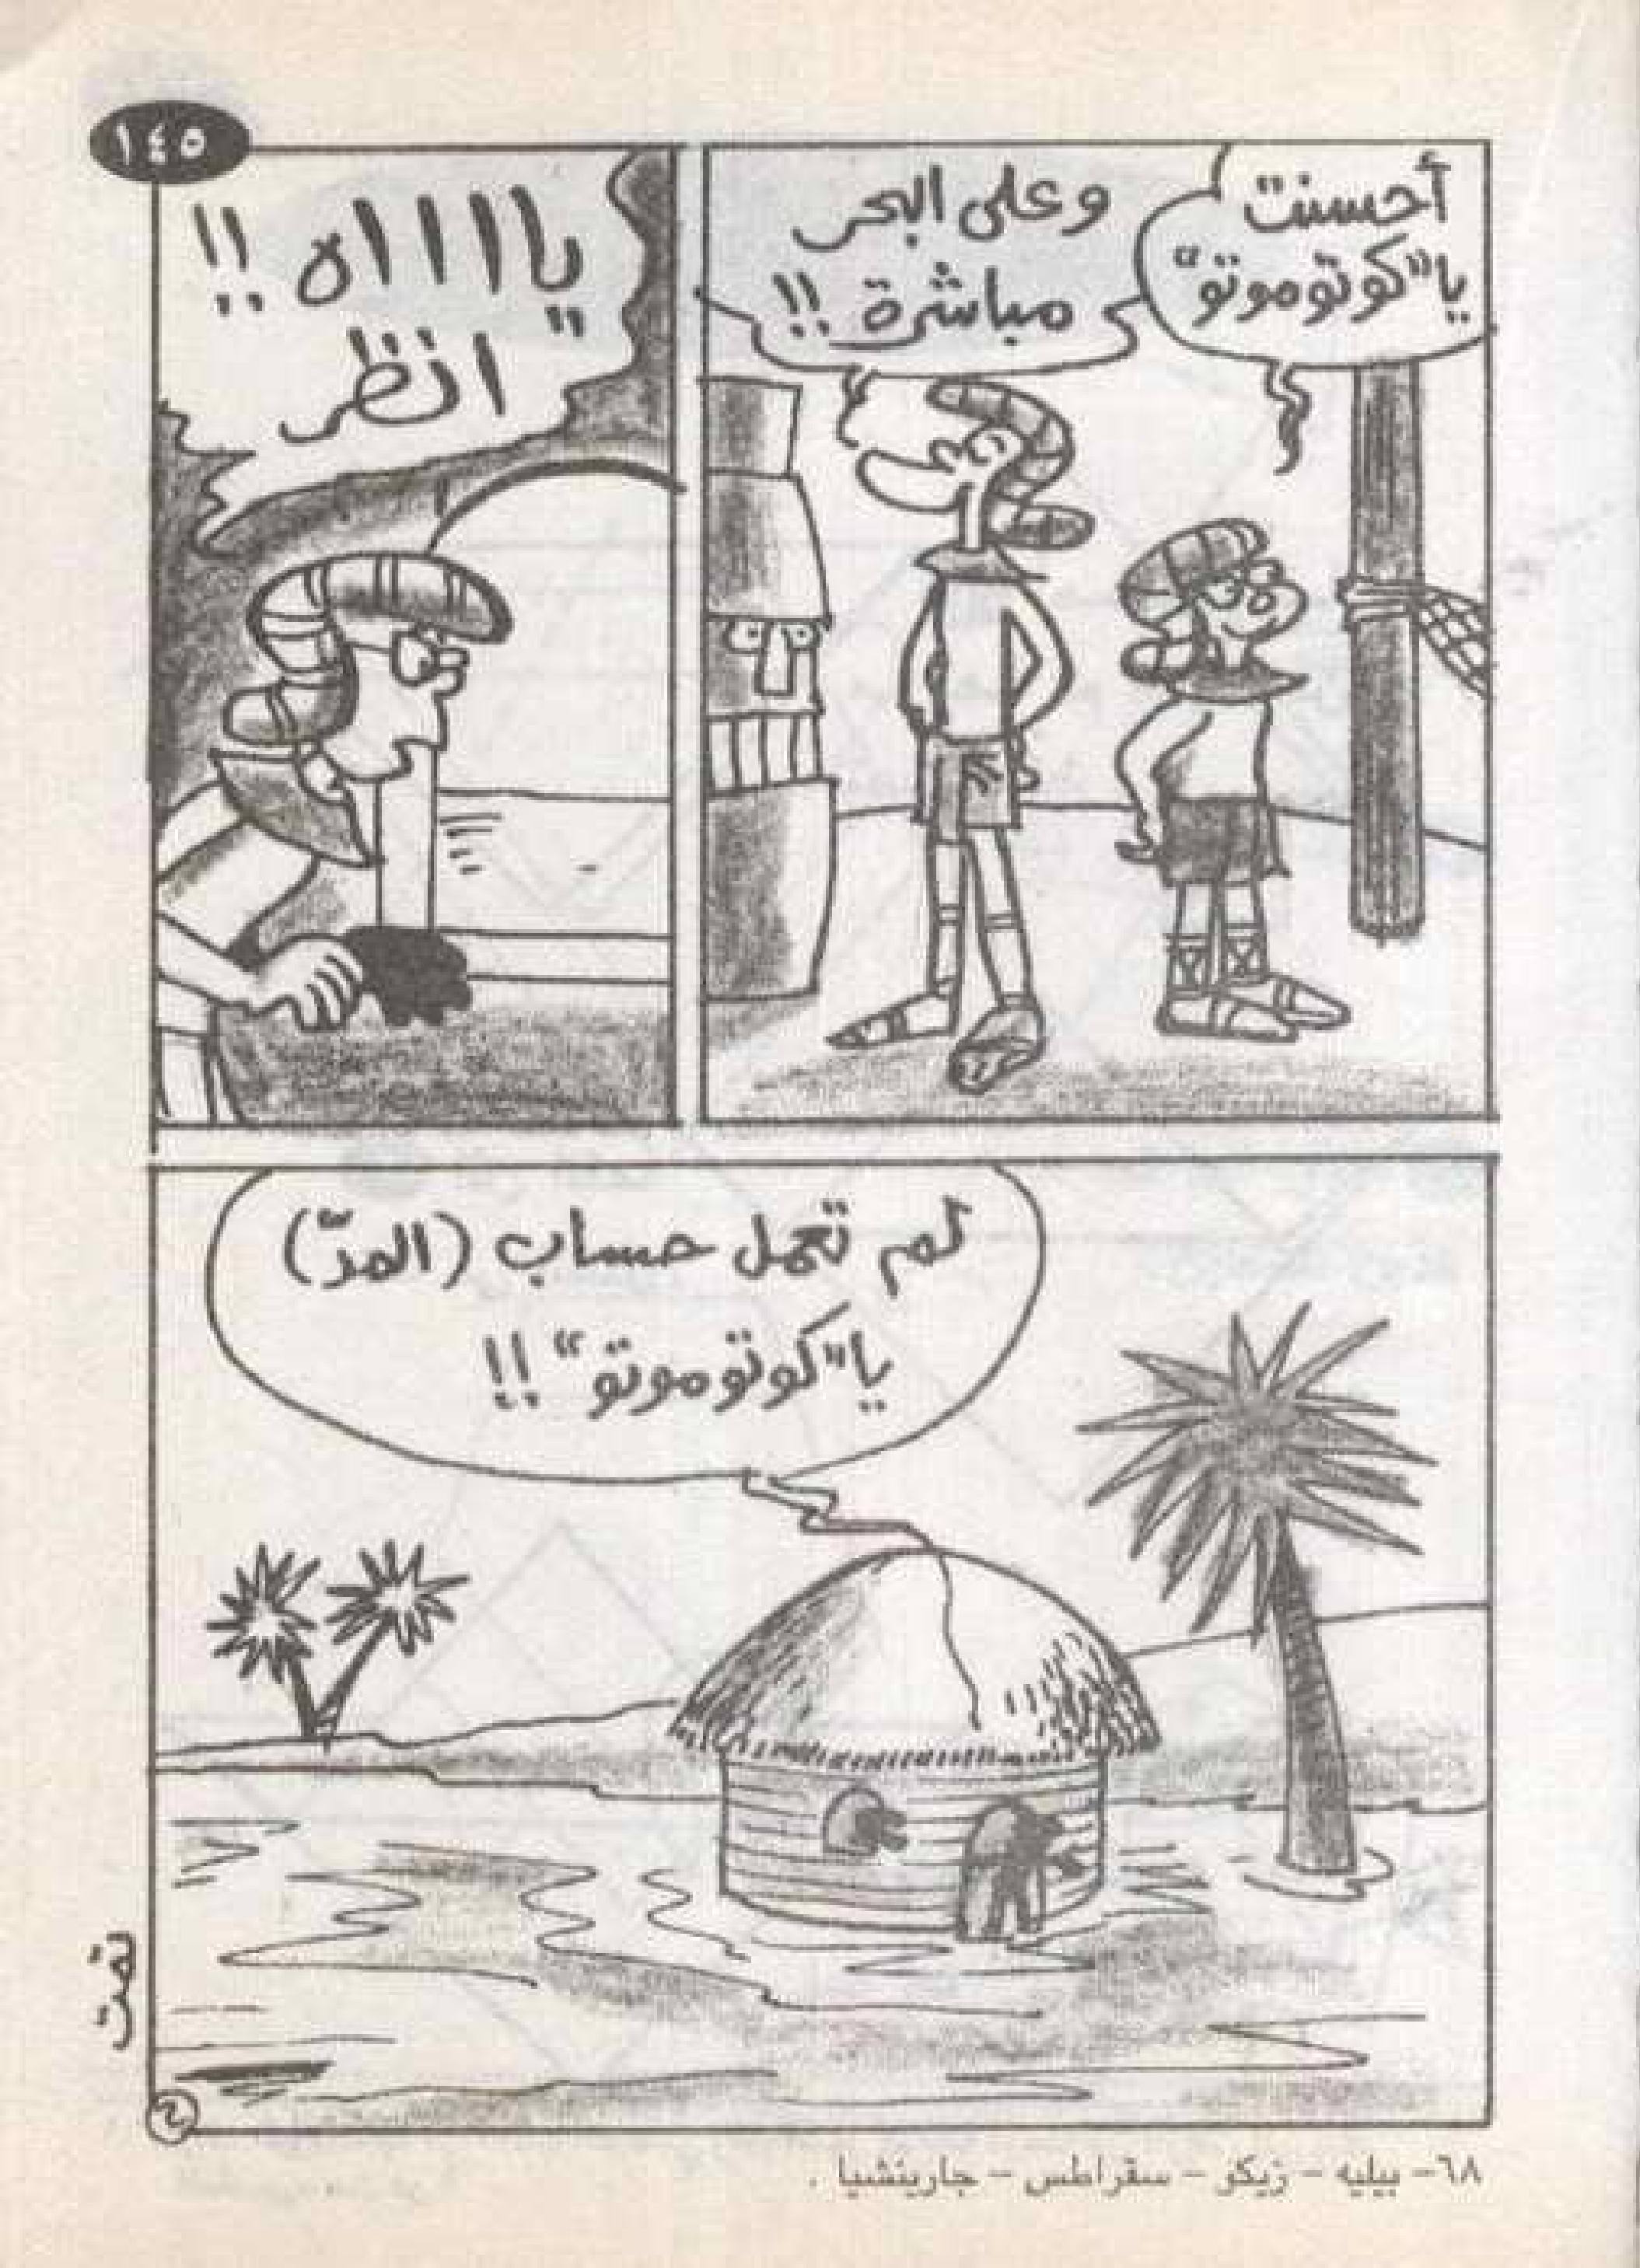 ١٤٥
أحسنت
يا "كوتوموتو"
وعلى البحر
مباشرة !!
ياااااه !!
انظر
لم تعمل حساب (المدّ)
يا "كوتوموتو" !!
تمت
٢
٦٨- بيليه - زيكو - سقراطس - جارينشيا .